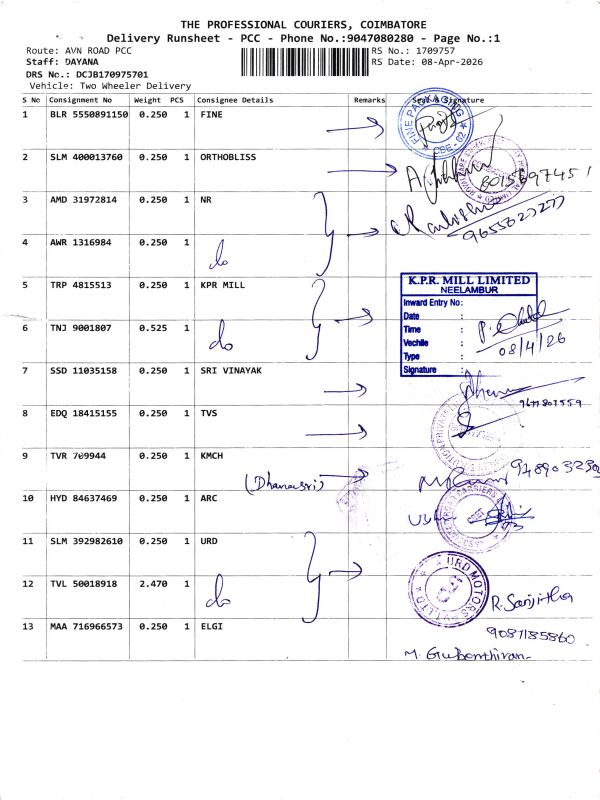 THE PROFESSIONAL COURIERS, COIMBATORE
Delivery Runsheet - PCC - Phone No.:9047080280 - Page No.:1
Route: AVN ROAD PCC RS No.: 1709757
Staff: DAYANA RS Date: 08-Apr-2026
DRS No.: DCJB170975701
Vehicle: Two Wheeler Delivery
S No Consignment No Weight PCS Consignee Details Remarks Seal & Signature
1 BLR 5550891150 0.250 1 FINE
FINE PACKAGING
CBE - 02
2 SLM 400013760 0.250 1 ORTHOBLISS
3 AMD 31972814 0.250 1 NR
4 AWR 1316984 0.250 1
do
5 TRP 4815513 0.250 1 KPR MILL
K.P.R. MILL LIMITED
NEELAMBUR
Inward Entry No:
Date :
Time :
Vechile :
Type :
Signature :
08/4/26
6 TNJ 9001807 0.525 1
do
7 SSD 11035158 0.250 1 SRI VINAYAK
8 EDQ 18415155 0.250 1 TVS
9 TVR 709944 0.250 1 KMCH
(Dhanasri)
10 HYD 84637469 0.250 1 ARC
11 SLM 392982610 0.250 1 URD
12 TVL 50018918 2.470 1
do
URD MOTORS
R. Sanjitha
13 MAA 716966573 0.250 1 ELGI